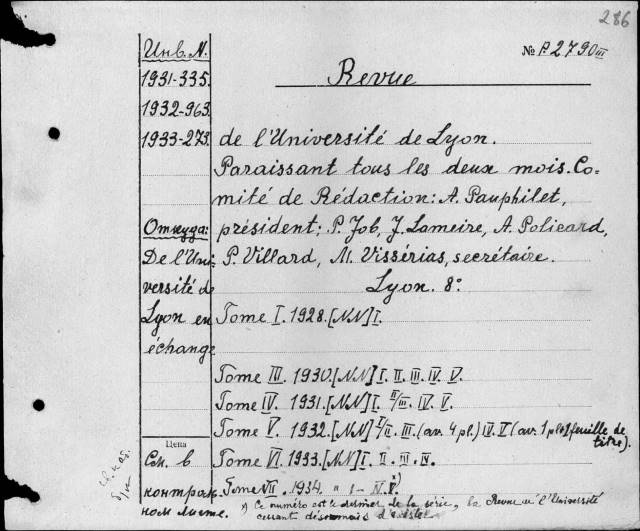 286
№ P2790III
Инв. N.
1931-335.
1932-963.
1933-273.
Revue
de l'Université de Lyon.
Paraissant tous les deux mois. Co-
mité de Rédaction: A. Pauphilet,
président; P. Job, J. Lameire, A. Policard,
P. Villard, M. Vissérias, secrétaire.
Lyon. 8º
Откуда:
De l'Uni-
versité de
Lyon en
échange
Tome I. 1928. [NN] I.
Tome III. 1930. [NN] I. II. III. IV. V.
Tome IV. 1931. [NN] I. II/III. IV. V.
Tome V. 1932. [NN] I/II. III. (av. 4 pl.) IV. V (av. 1 pl. feuille de
titre).
Tome VI. 1933. [NN] I. II. III. IV.
Tome VII. 1934. " I - IV. x)
x) Ce numéro est le dernier de la série, la Revue de l'Université
cessant désormais d'exister
Цена
См. в
контрак.
ном листе.